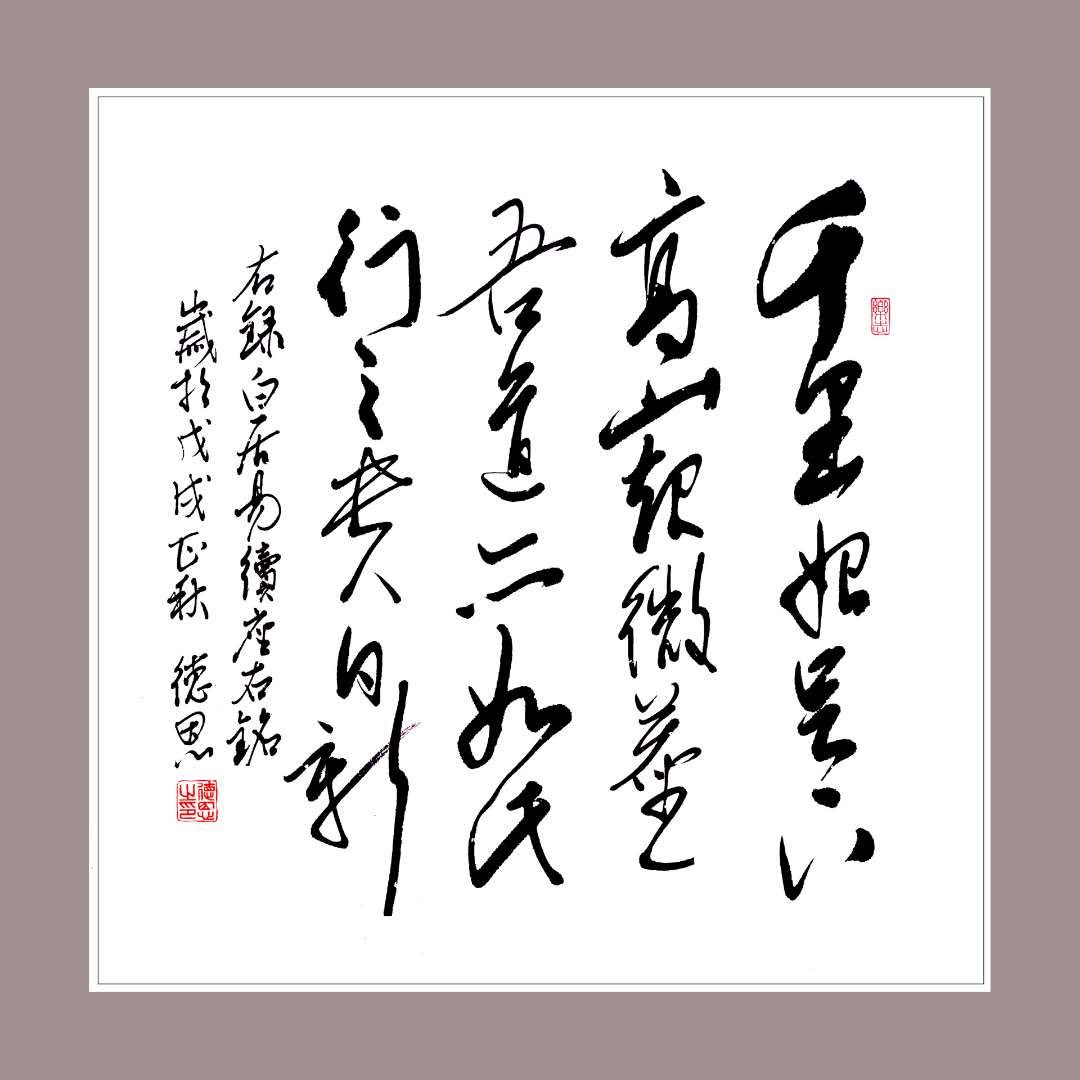 千里始足下
高山起微塵
吾道亦如此
行之貴日新
右録白居易續座右銘
歲於戊戌正秋 德思
德思之印